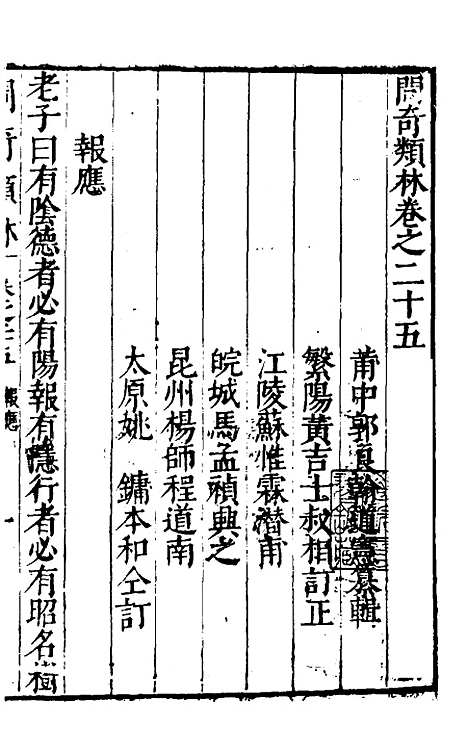 問奇類林卷之二十五
莆中郭良翰道憲纂輯
繁陽黃吉士叔相訂正
江陵蘇惟霖潛甫
皖城馬孟禎興之
昆州楊師程道南
太原姚 鏞本和仝訂
報應
老子曰有陰德者必有陽報有隱行者必有昭名樹
問奇類林 卷之二十五 報應 一